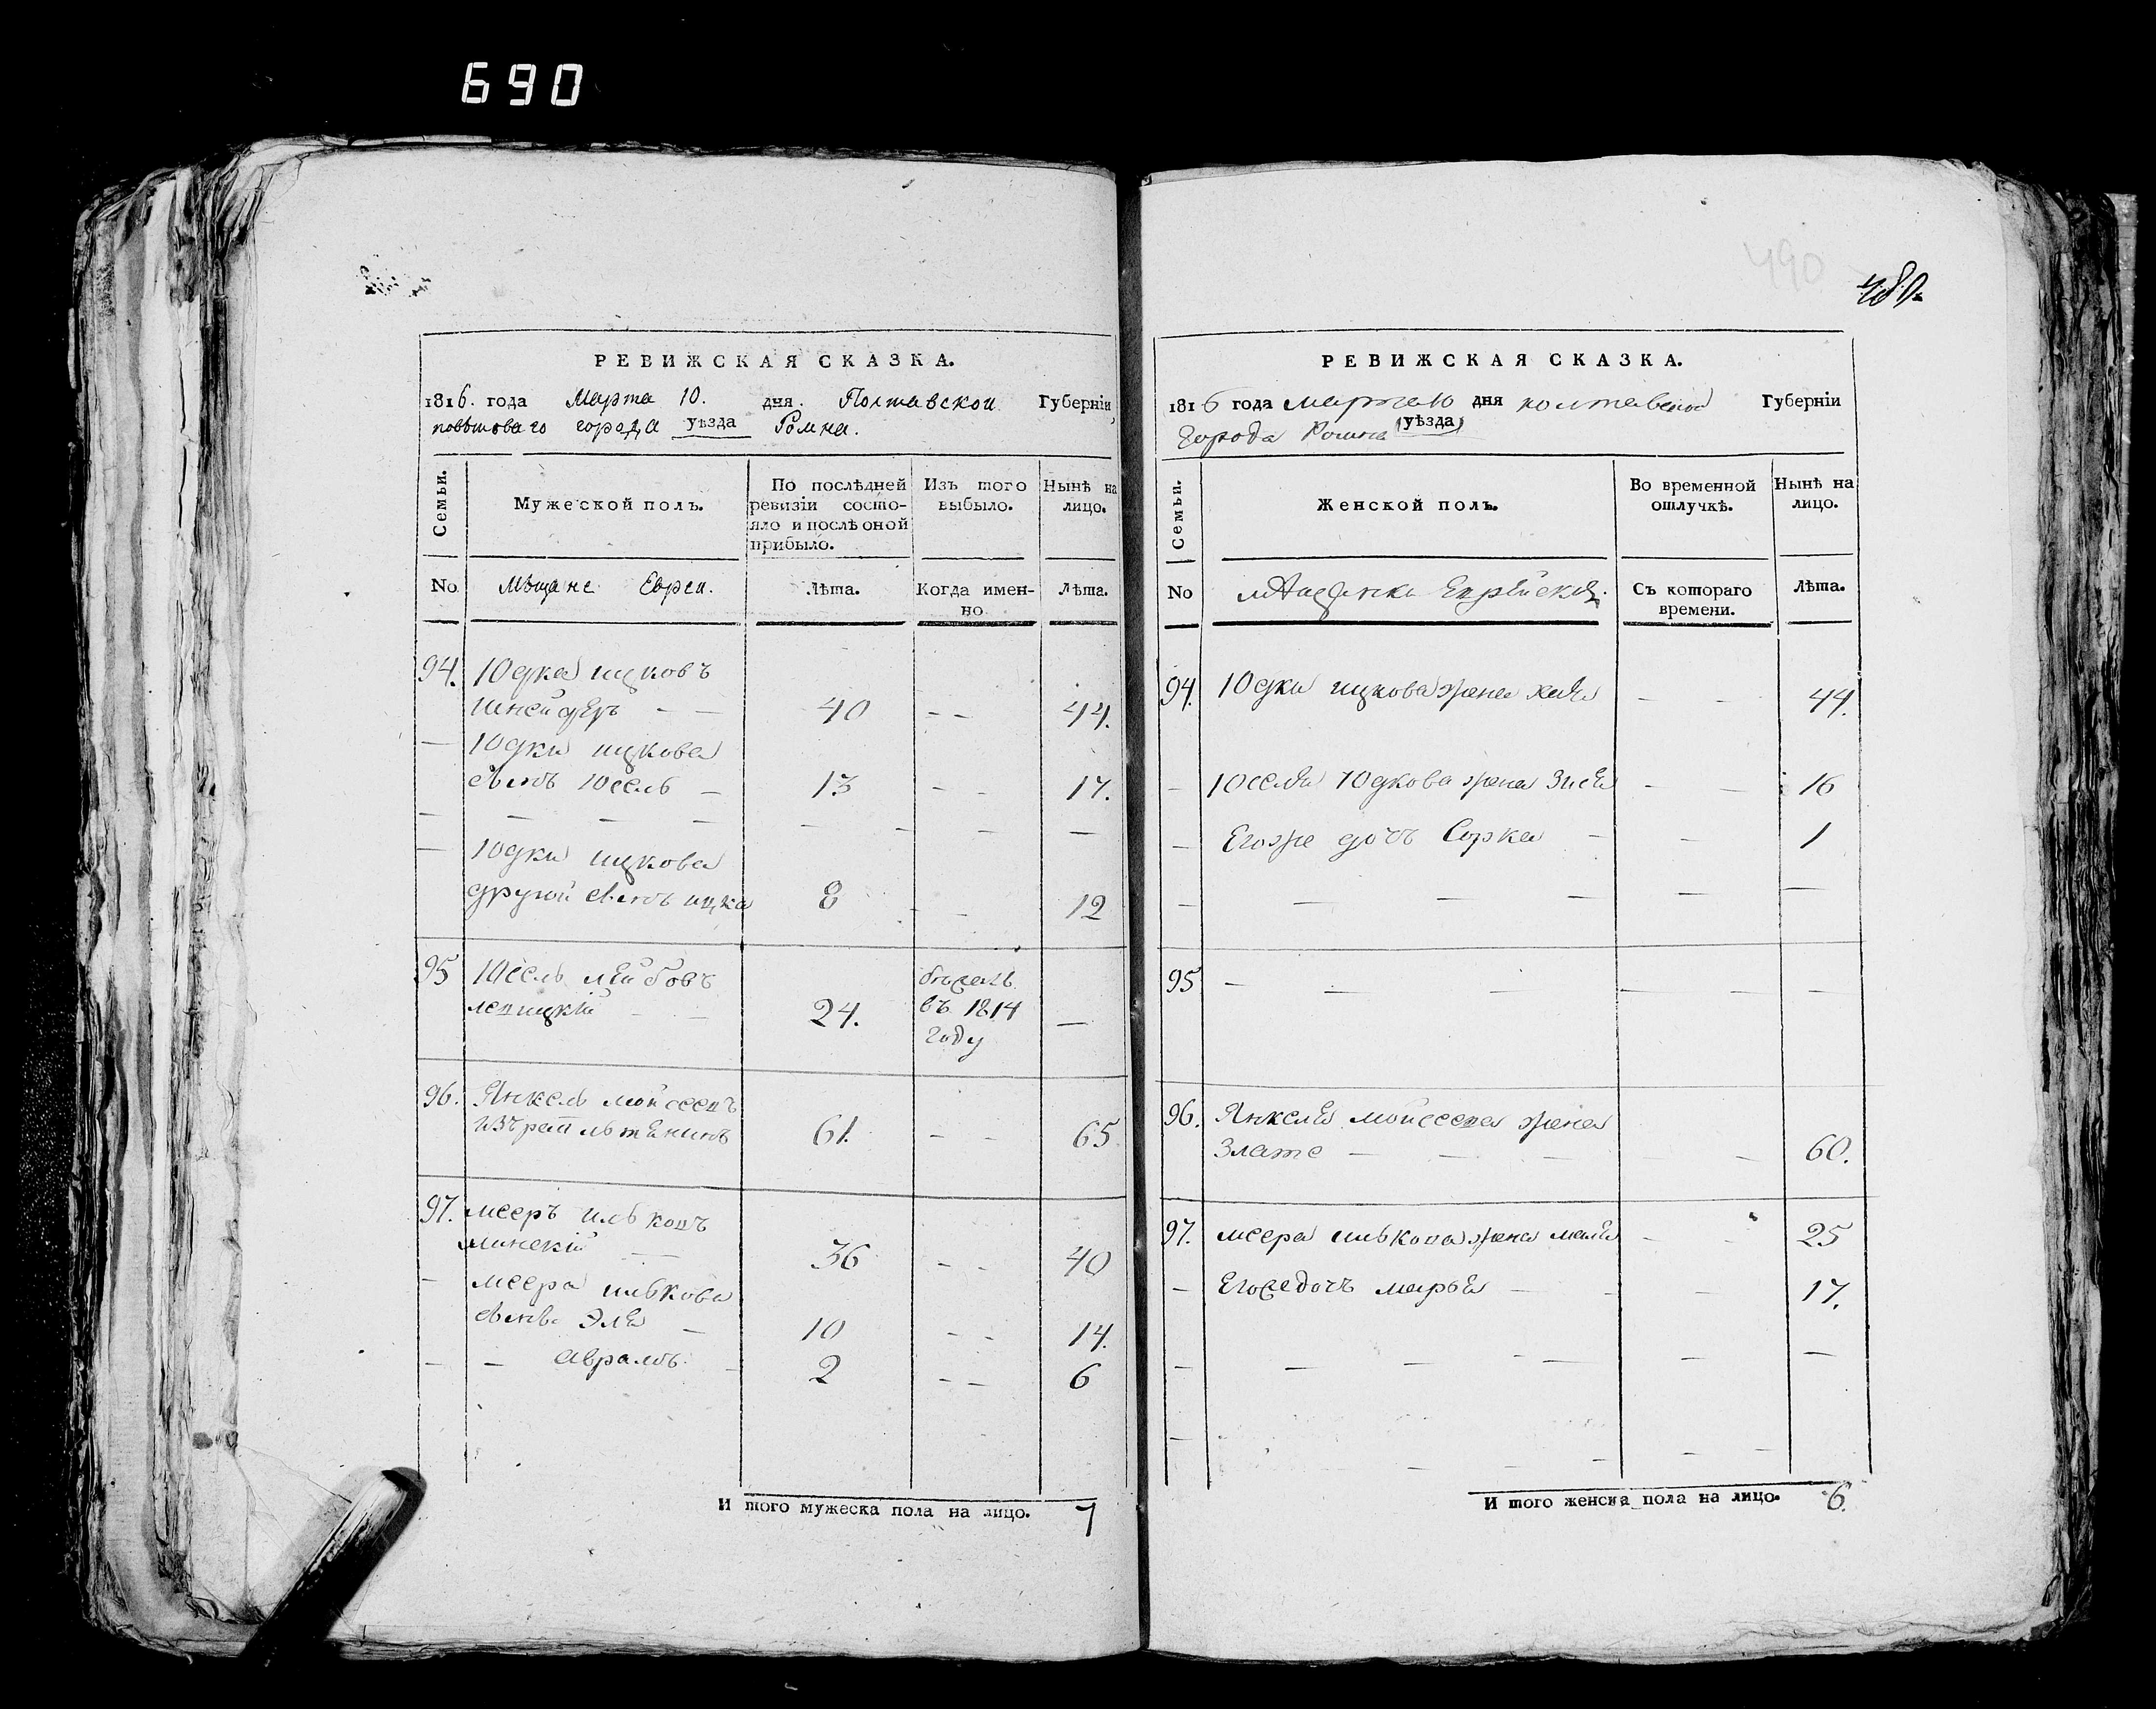 690
490
480.
РЕВИЖСКАЯ СКАЗКА.
1816. года Марта 10. дня. Полтавской Губерніи,
повѣтоваго города уѣзда Ромна.
Семьи.
Мужеской полъ.
По послѣдней ревизіи состояло и послѣ оной прибыло.
Изъ того выбыло.
Нынѣ на лицо.
No Мѣщане Евреи. Лѣта. Когда именно Лѣта.
94. Юдка ицковъ
Шнейдеръ — — 40 - - 44.
— Юдки ицкова
сынъ Юсель — 13 - - 17.
— — — — — - — —
— Юдки ицкова
другой сынъ ицка 8 - - 12
95 Юсель лейбовъ бѣжалъ
24. въ 1814 —
году
96. Янкель мойсеевъ
61. - - 65
97. мееръ ильковъ
минскій — 36 - - 40
— меера илькова
сынъ Эля — 10 - - 14.
— — Аврамъ. — 2 - - 6
И того мужеска пола на лицо. 7
РЕВИЖСКАЯ СКАЗКА.
1816 года марта 10 дня полтавской Губерніи
Города Ромна (уѣзда)
Семьи.
Женской полъ.
Во временной отлучкѣ.
Нынѣ на лицо.
No Съ котораго времени. Лѣта.
94. Юдки ицкова жена хая - - 44.
- Юселя Юдкова жена Зися - — 16
— Егоже дочь Сорка — — 1
— — — — — —
95 — — — — — —
96. Янкеля мойсеева жена
Злате — — — — — 60.
97. меера илькова жена маля - - 25
— Егожедочь марья — - — 17.
— — — - — — —
И того женска пола на лицо. 6.